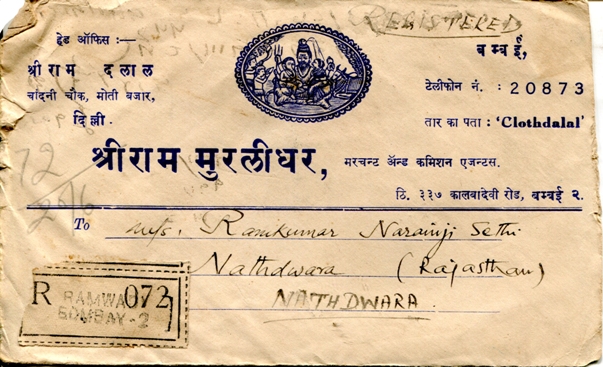 REGISTERED
हेड ऑफिस :—
श्री राम दलाल
चांदनी चौक, मोती बजार,
दिल्ली.
बम्बई,
टेलीफोन नं. : 20873
तार का पता : 'Clothdalal'
श्रीराम मुरलीधर, मरचन्ट ॲन्ड कमिशन एजन्टस.
ठि. ३३७ कालबादेवी रोड, बम्बई २.
72
To M/s. Ramkumar Narainji Sethi
Nathdwara (Rajasthan)
NATHDWARA.
R 072
BOMBAY-2